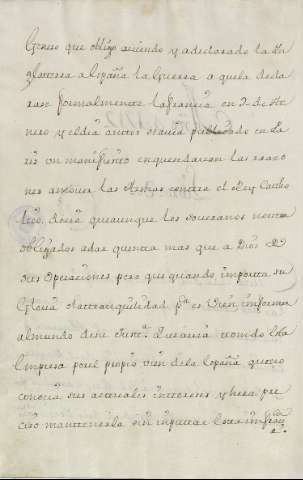 que obligo aviendo ya declarado la In
glaterra a España la Guerra a que la decla
rase formalmente la francia en 9. de He
nero y el dia antes havia publicado en Pa
ris un manifiesto en que davan las razo
nes a mover las Armas contra el Rey Catho
lico. decia que aunque los soveranos no eran
obligados a dar quenta mas que a Dios de
sus Operaciones pero que quando importa su
Gloria la tranquilidad p.ca es bien informar
al mundo de su Just.a
Empresa por el propio vien de la España que no
conocia sus actuales intereses y hera pre
ciso mantenerla sin inquietar